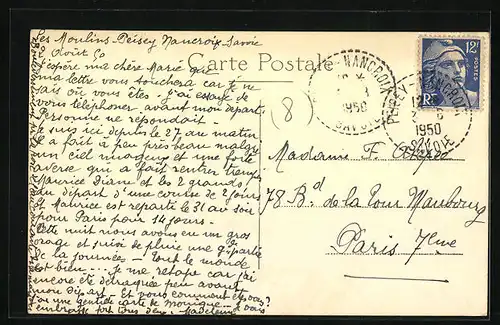 Les Moulins Peisey Nancroix Savoie
2 Août 50
Carte Postale
J'espère ma chère Marie que
ma lettre vous touchera car je ne
sais où vous êtes. J'ai essayé de
vous téléphoner avant mon départ
Personne ne répondait.
Je suis ici depuis le 27 au matin
Il a fait à peu près beau malgré
un ciel nuageux et une forte
averse qui a fait rentrer trempés
Maurice Diane et les 2 grands
au départ d'une course de 2 jours
et Maurice est reparti le 31 au soir
pour Paris pour 14 jours.
Cette nuit nous avons eu un gros
orage et suivi de pluie une gde partie
de la journée - Tout le monde
est bien... Je me retape car j'ai
encore été détraquée peu avant
mon départ. Et vous comment êtes vous?
J'ai une gentille carte de Monique. Je vous
embrasse fort tous deux. Madeleine
(8)
NANCROIX
1950
SAVOIE
12F
POSTES
RF
PEISEY-NANCROIX
12
2 8
1950
SAVOIE
Madame F.
78 Bd de la Tour Maubourg
Paris 7eme